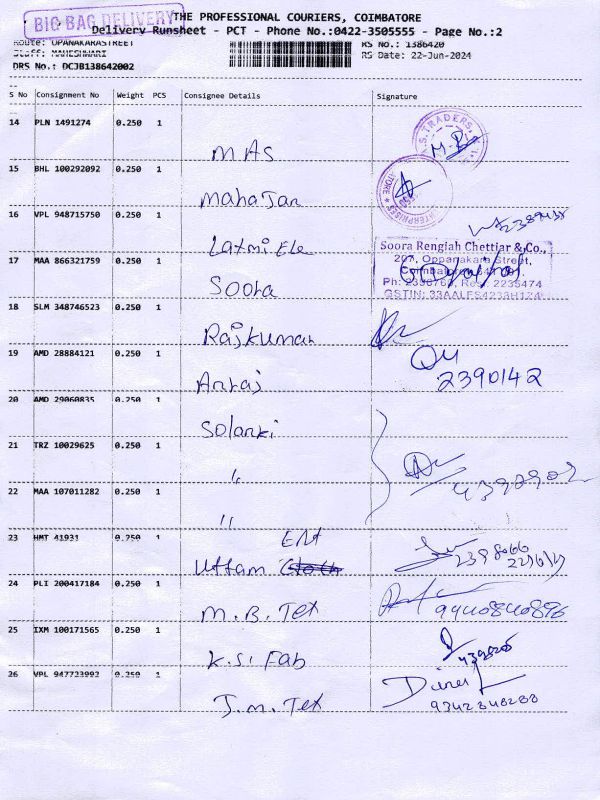 BIG BAG DELIVERY
THE PROFESSIONAL COURIERS, COIMBATORE
Delivery Runsheet - PCT - Phone No.:0422-3505555 - Page No.:2
Route: OPANAKARASTREET RS No.: 1386420
Staff: MAHESHWARI RS Date: 22-Jun-2024
DRS No.: DCJB138642002
S No Consignment No Weight PCS Consignee Details Signature
14 PLN 1491274 0.250 1 M AS
S. TRADERS
15 BHL 100292092 0.250 1 Mahajan
16 VPL 948715750 0.250 1 Laxmi Ele
17 MAA 866321759 0.250 1 Soora
Soora Rengiah Chettiar & Co.,
207, Oppanakara Street,
18 SLM 348746523 0.250 1 Rajkumar
19 AMD 28884121 0.250 1 2390142
20 AMD 29060835 0.250 1 Solanki
21 TRZ 10029625 0.250 1 "
22 MAA 107011282 0.250 1 "
23 HMT 41931 0.250 1 Uttam Ent 2398066
24 PLI 200417184 0.250 1 M.B. Tex 9940840896
25 IXM 100171565 0.250 1 K.S. Fab
26 VPL 947723992 0.250 1 J.M. Tex